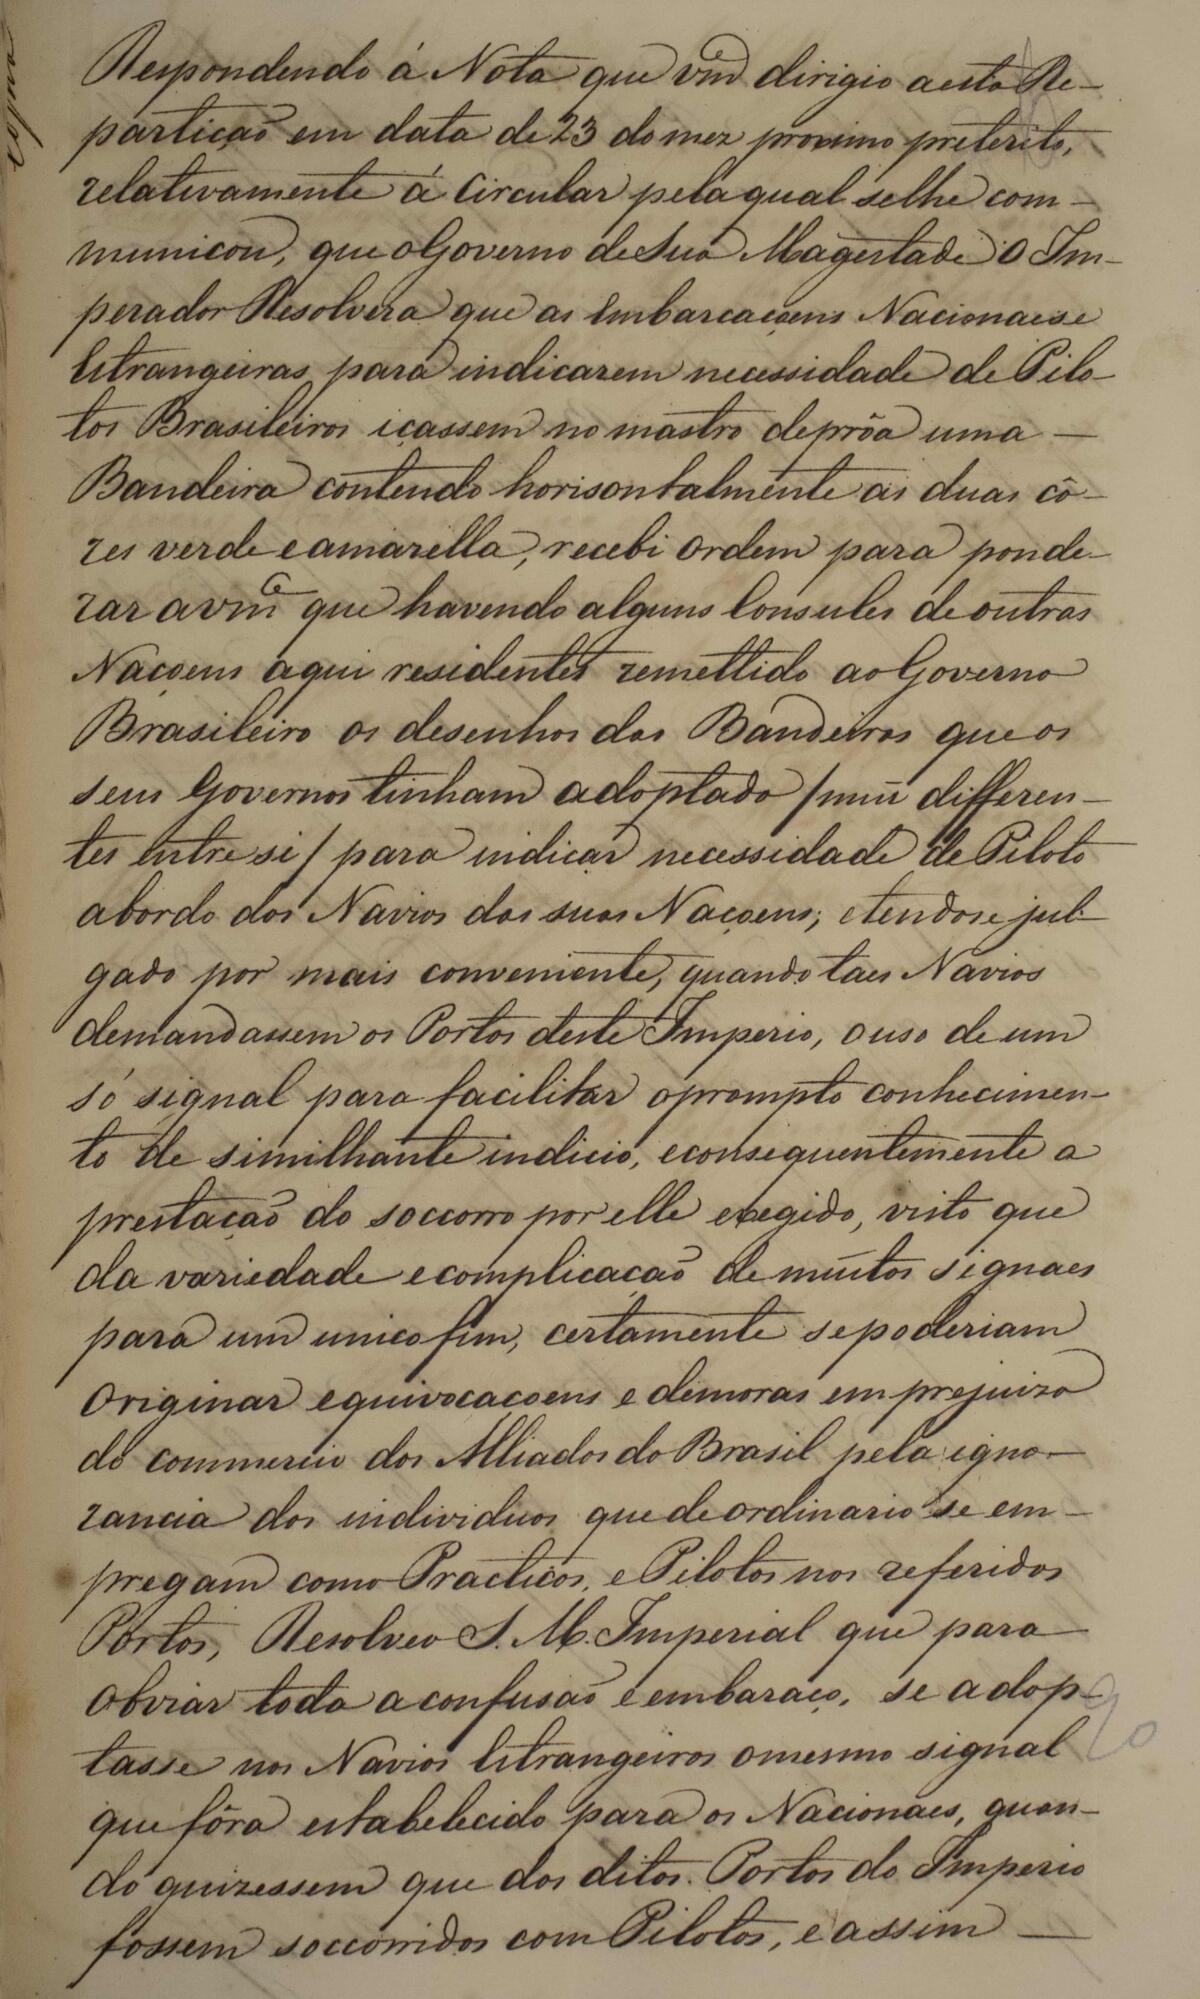 Respondendo á Nota que vm.ce dirigio a esta Re-
partição em data de 23 do mez proximo preterito,
relativamente á Circular pela qual se lhe com-
municou, que o Governo de Sua Magestade O Im-
perador Resolvera que as Embarcaçoens Nacionaes e
Estrangeiras para indicarem necessidade de Pilo-
tos Brasileiros içassem no mastro de prôa uma
Bandeira contendo horisontalmente as duas cô-
res verde e amarella, recebi Ordem para ponde-
rar a vm.ce que havendo alguns Consules de outras
Naçoens aqui residentes remettido ao Governo
Brasileiro os desenhos das Bandeiras que os
seus Governos tinham adoptado /mui differen-
tes entre si/ para indicar necessidade de Piloto
abordo dos Navios das suas Naçoens; e tendo se jul-
gado por mais conveniente, quando taes Navios
demandassem os Portos deste Imperio, o uso de um
só signal para facilitar o prompto conhecimen-
to de similhante indicio, e consequentemente a
prestação do soccorro por elle exegido, visto que
da variedade e complicação de muitos signaes
para um unico fim, certamente se poderiam
Originar equivocacoens e demoras em prejuizo
do commercio dos Alliados do Brasil pela igno-
rancia dos individuos que de ordinario se em-
pregam como Practicos, e Pilotos nos referidos
Portos, Resolveo S. M. Imperial que para
Obviar toda a confusão e embaraço, se adop-
tasse nos Navios Estrangeiros o mesmo signal
que fôra estabelecido para os Nacionaes, quan-
do quizessem que dos ditos Portos do Imperio
fossem soccorridos com Pilotos, e assim